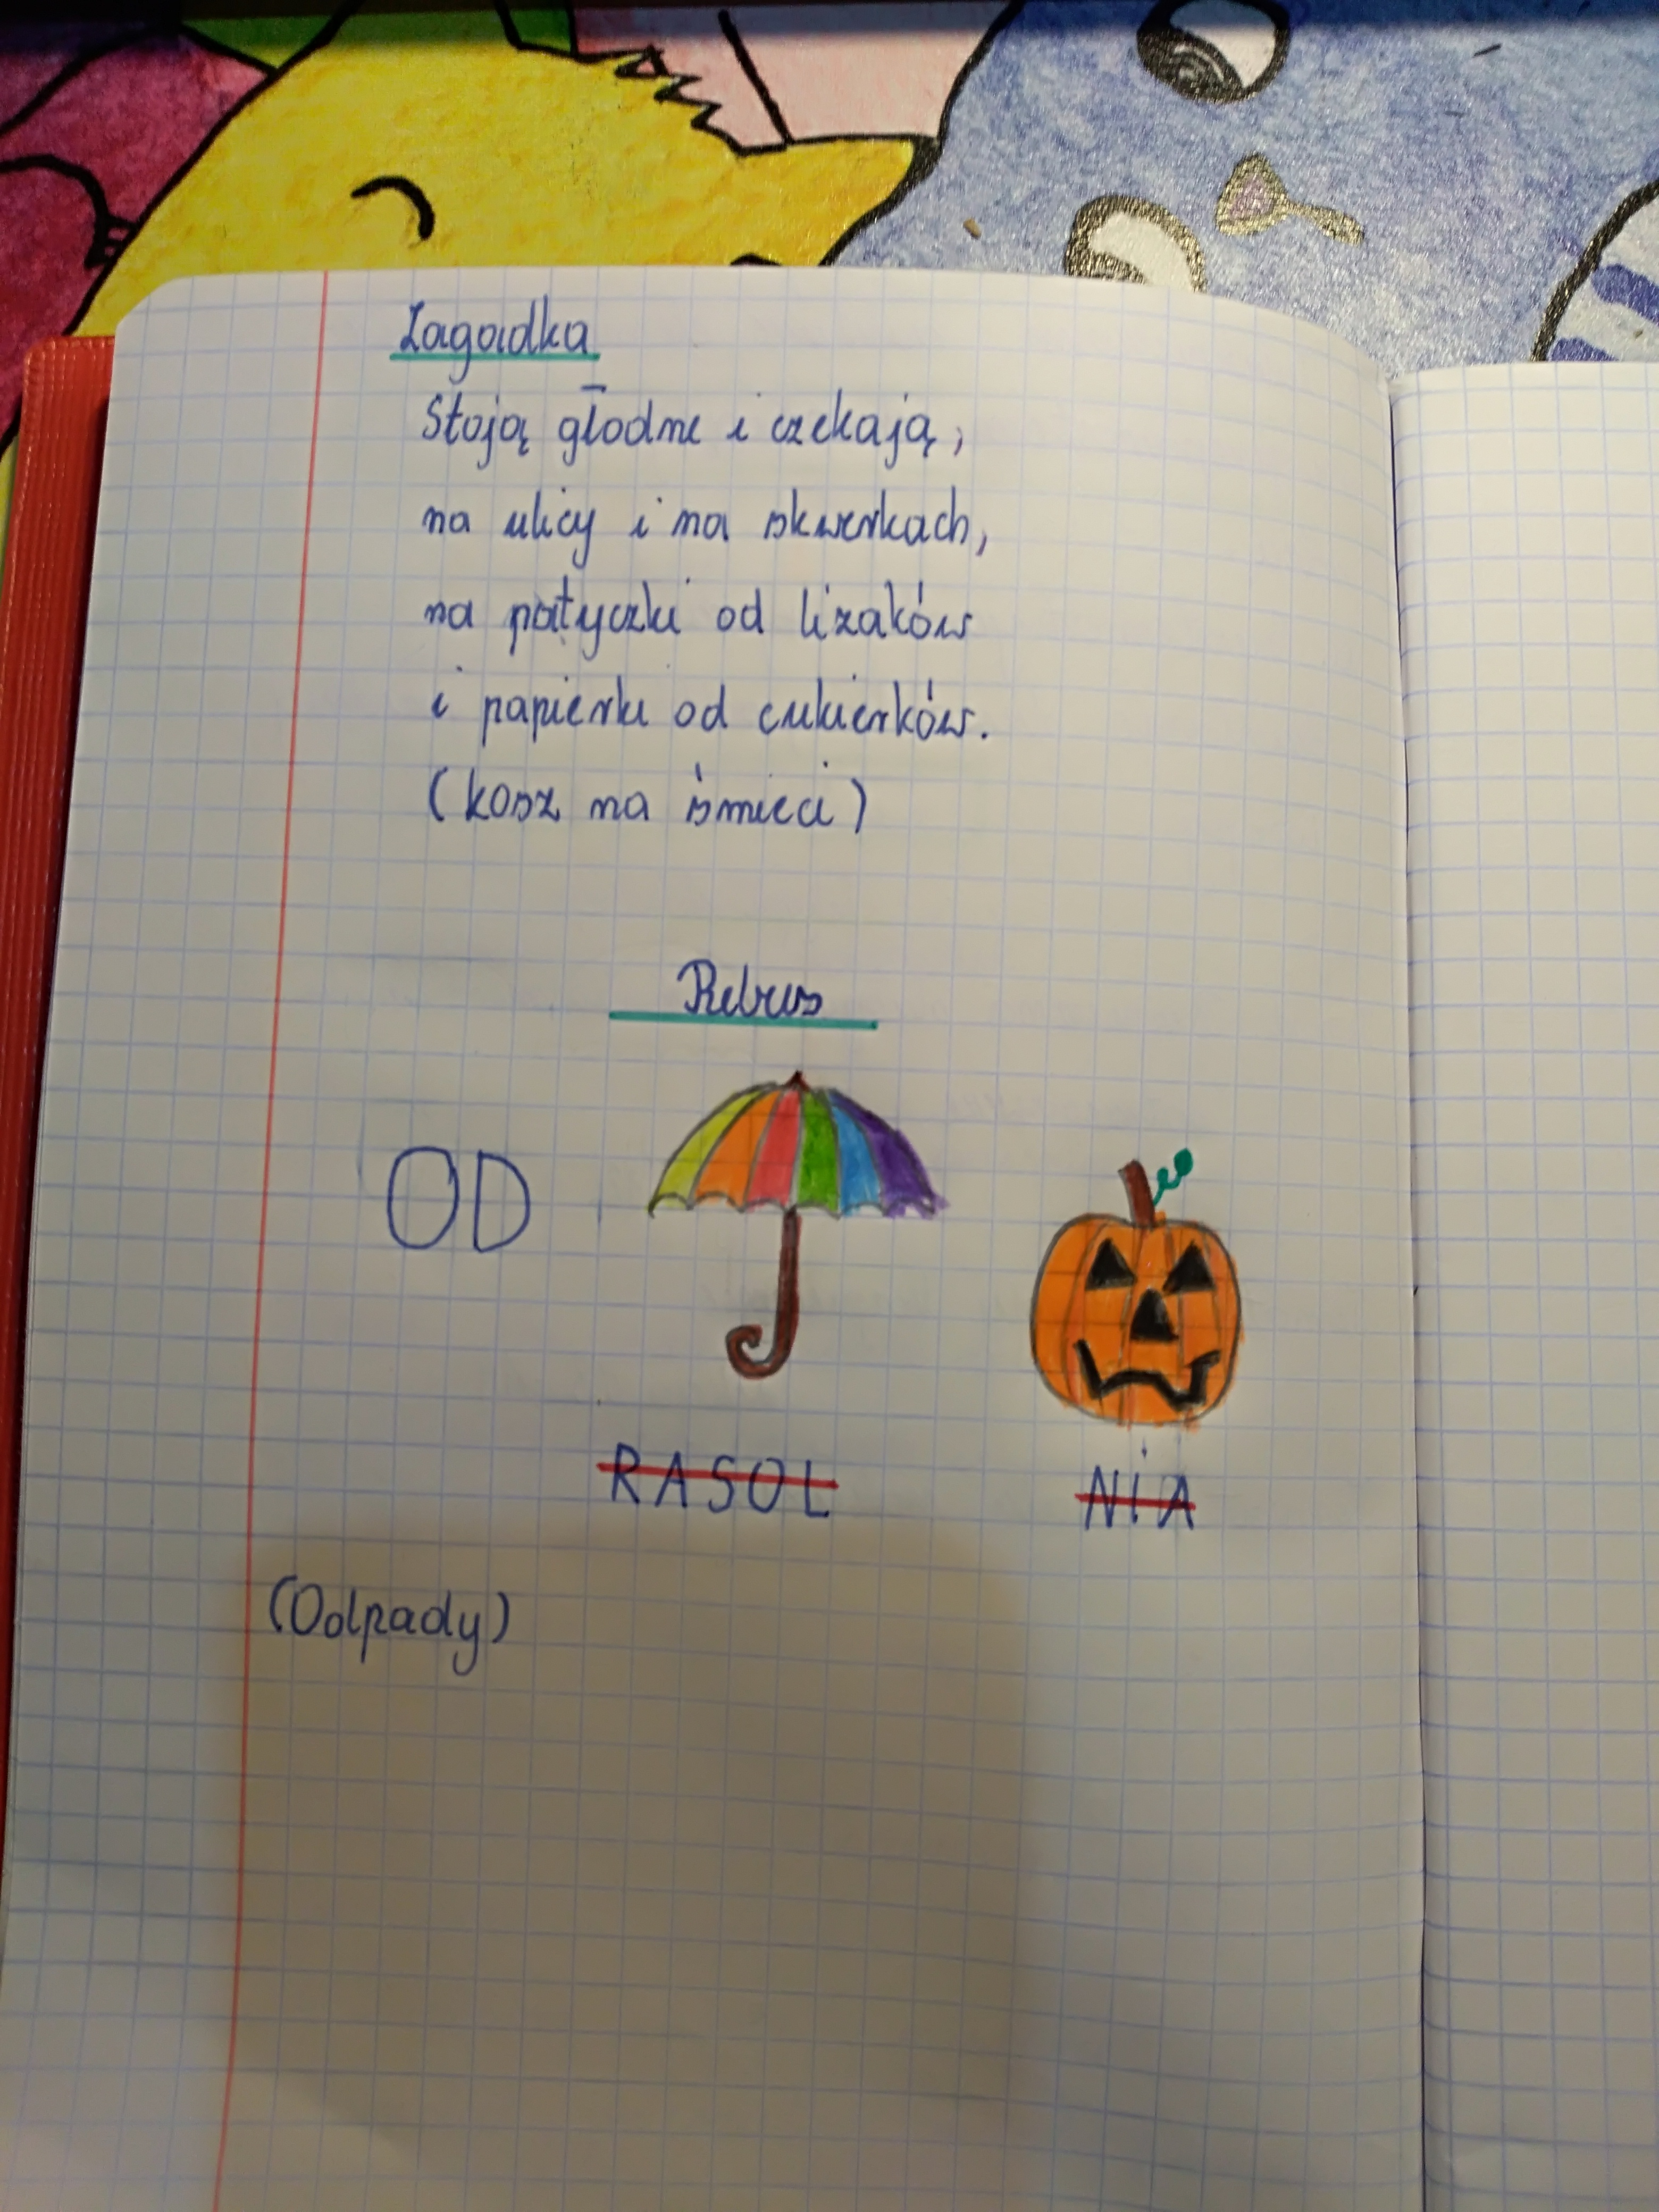 Zagadka
Stoją głodne i czekają,
na ulicy i na skwerkach,
na patyczki od lizaków
i papierki od cukierków.
(kosz na śmieci)
Rebus
OD
RASOL NiA
(Odpady)